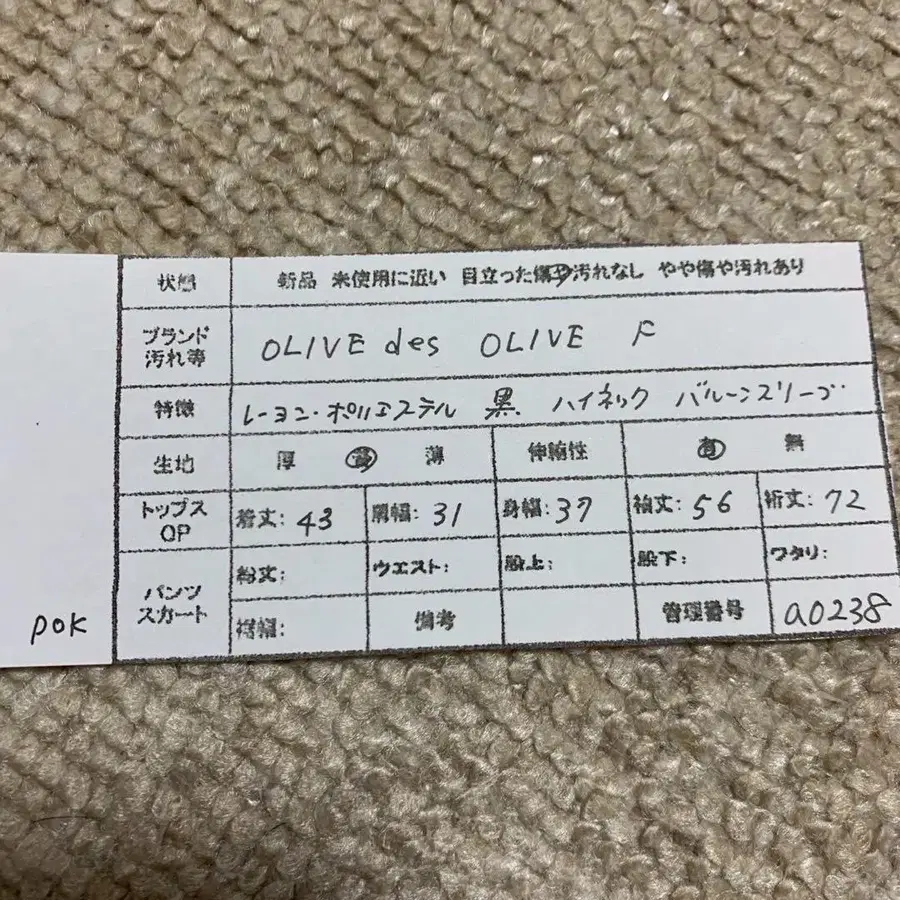 状態 新品 未使用に近い 目立った傷や汚れなし やや傷や汚れあり
ブランド
汚れ等
OLIVE des OLIVE F
特徴 レーヨン・ポリエステル 黒 ハイネック バルーンスリーブ
生地 厚 普 薄 伸縮性 有 無
トップス
OP
着丈: 43 肩幅: 31 身幅: 37 袖丈: 56 裄丈: 72
パンツ
スカート
総丈: ウエスト: 股上: 股下: ワタリ:
裾幅: 備考 管理番号 a0238
pok